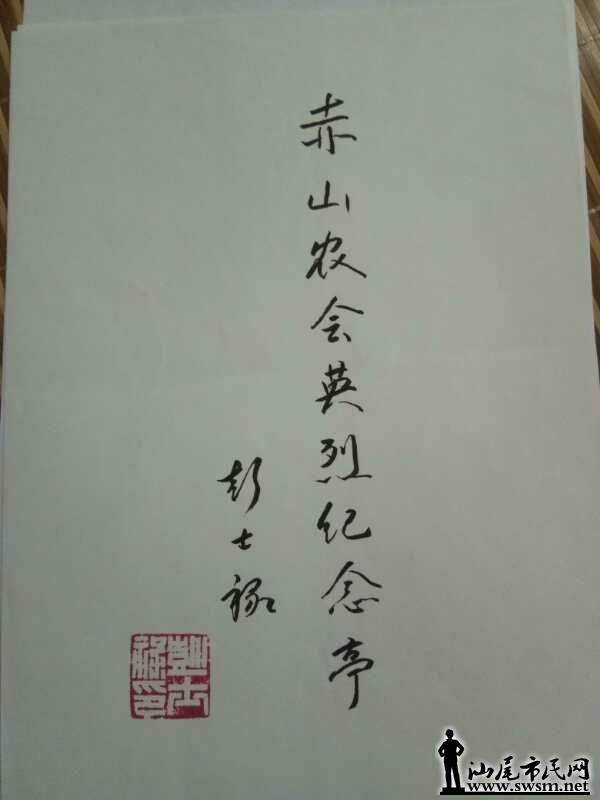 赤山农会英烈纪念亭
彭士禄
彭士禄印
汕尾市民网
www.swsm.net